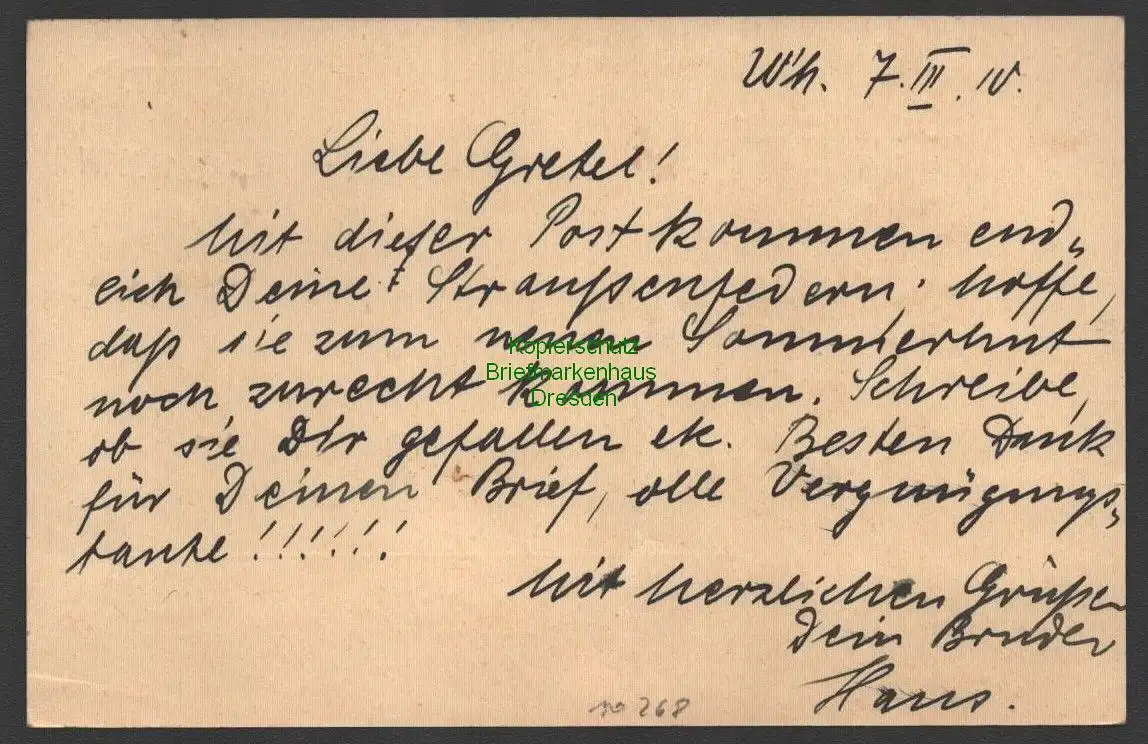 Wh. 7.III.10.
Liebe Gretel!
Mit dieser Post kommen end„
lich Deine Straußenfedern; hoffe,
daß sie zum neuen Sommerhut
noch zurecht kommen. Schreibe,
ob sie Dir gefallen etc. Besten Dank
für Deinen Brief, olle Vergnügungs„
tante!!!!!!
Mit herzlichen Grüßen
Dein Bruder
Hans.
Kopierschutz
Briefmarkenhaus
Dresden
268